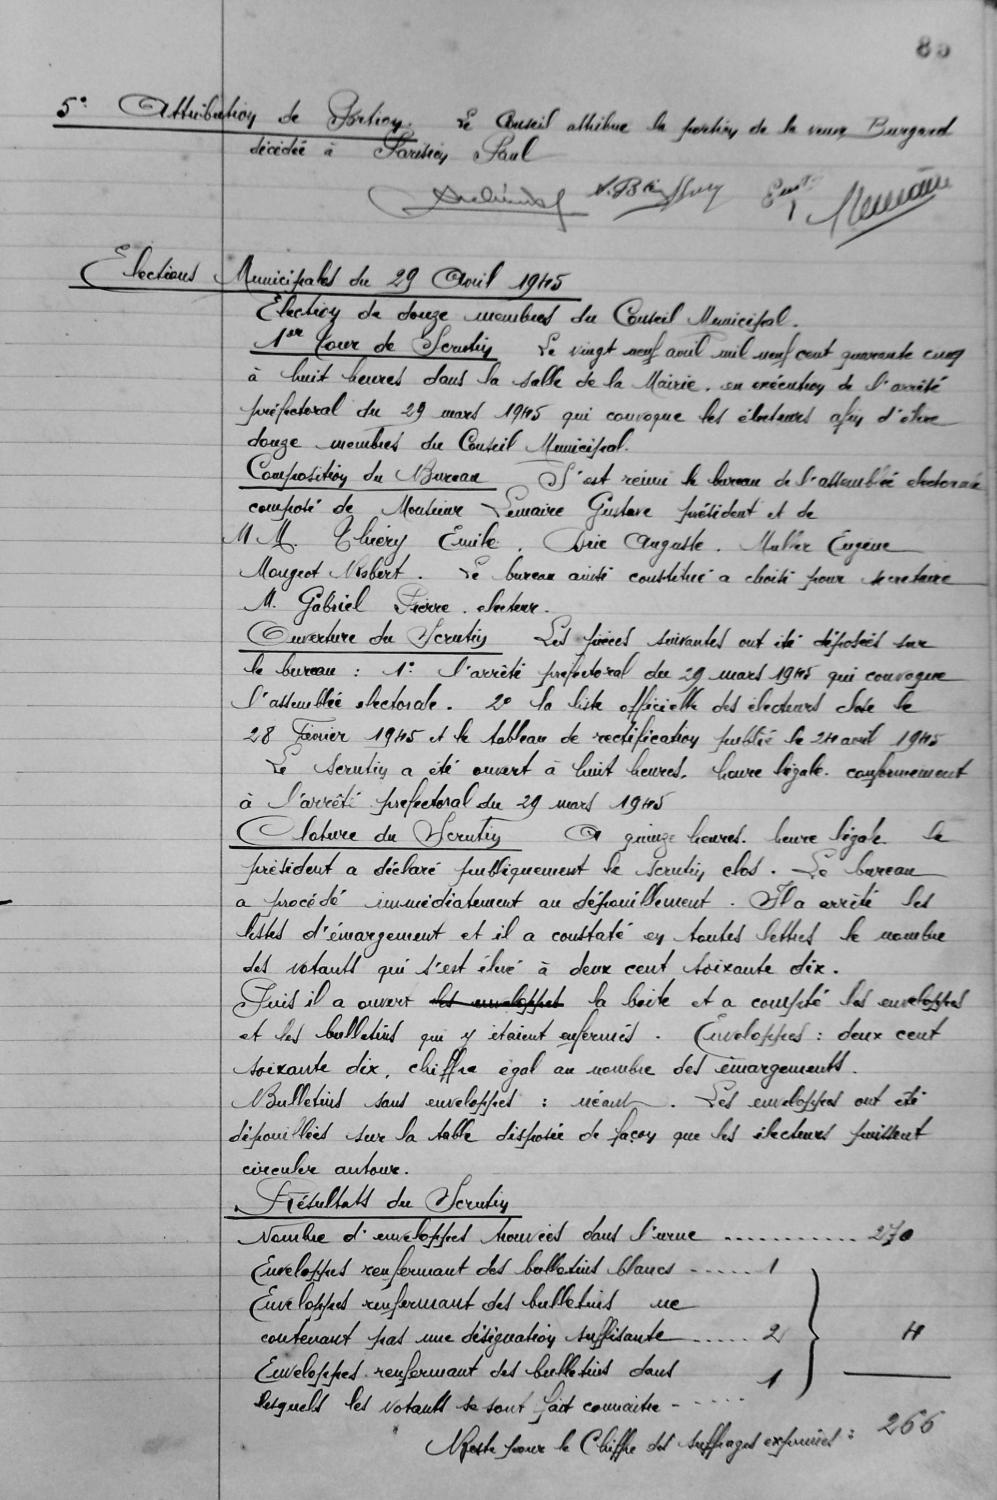 85
5° Attribution de Portion. Le Conseil attribue la portion de la veuve Burgard
décédée à Parisien Paul
Elections Municipales du 29 Avril 1945
Election de douze membres du Conseil Municipal.
1er tour de Scrutin Le vingt neuf avril mil neuf cent quarante cinq
à huit heures dans la salle de la Mairie. en exécution de l'arrêté
préfectoral du 29 mars 1945 qui convoque les électeurs afin d'élire
douze membres du Conseil Municipal.
Composition du Bureau S'est réuni le bureau de l'assemblée électorale
composé de Monsieur Lemaire Gustave président et de
MM. Thiéry Emile. Auguste. Muller Eugène
Mougeot Robert. Le bureau ainsi constitué a choisi pour secretaire
M. Gabriel Pierre. electeur.
Ouverture du Scrutin Les pièces suivantes ont été déposées sur
le bureau : 1° l'arrêté prefectoral du 29 mars 1945 qui convoque
l'assemblée electorale. 2° la liste officielle des électeurs close le
28 Février 1945 et le tableau de rectification publié le 24 avril 1945
Le scrutin a été ouvert à huit heures. heure légale. conformement
à l'arrêté prefectoral du 29 mars 1945
Cloture du Scrutin A quinze heures. heure légale le
président a déclaré publiquement le scrutin clos. Le bureau
a procédé immédiatement au dépouillement. Il a arrêté les
listes d'émargement et il a constaté en toutes lettres le nombre
des votants qui s'est élevé à deux cent soixante dix.
Puis il a ouvert les enveloppes la boite et a compté les enveloppes
et les bulletins qui y étaient enfermés. Enveloppes : deux cent
soixante dix, chiffre égal au nombre des émargements.
Bulletins sans enveloppes : néant. Les enveloppes ont été
dépouillées sur la table disposée de façon que les électeurs puissent
circuler autour.
Résultats du Scrutin
Nombre d'enveloppes trouvées dans l'urne ............ 270
Enveloppes renfermant des bulletins blancs ..... 1
Enveloppes renfermant des bulletins ne
contenant pas une désignation suffisante ..... 2 4
Enveloppes renfermant des bulletins dans 1
lesquels les votants se sont fait connaitre .....
Reste pour le Chiffre des suffrages exprimés : 266